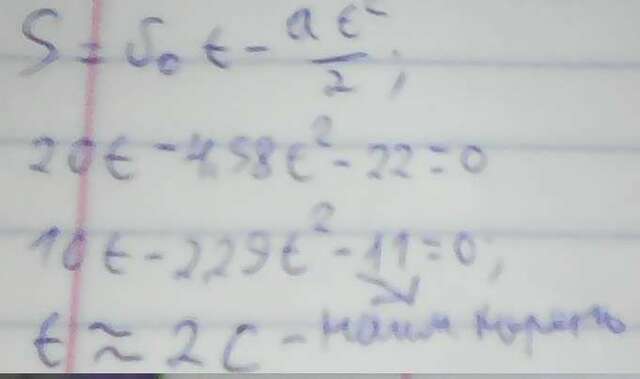 S = υ₀ t - at²/2;
20t - 4,58t² - 22 = 0
10t - 2,29t² - 11 = 0;
t ≈ 2 с - наим корень